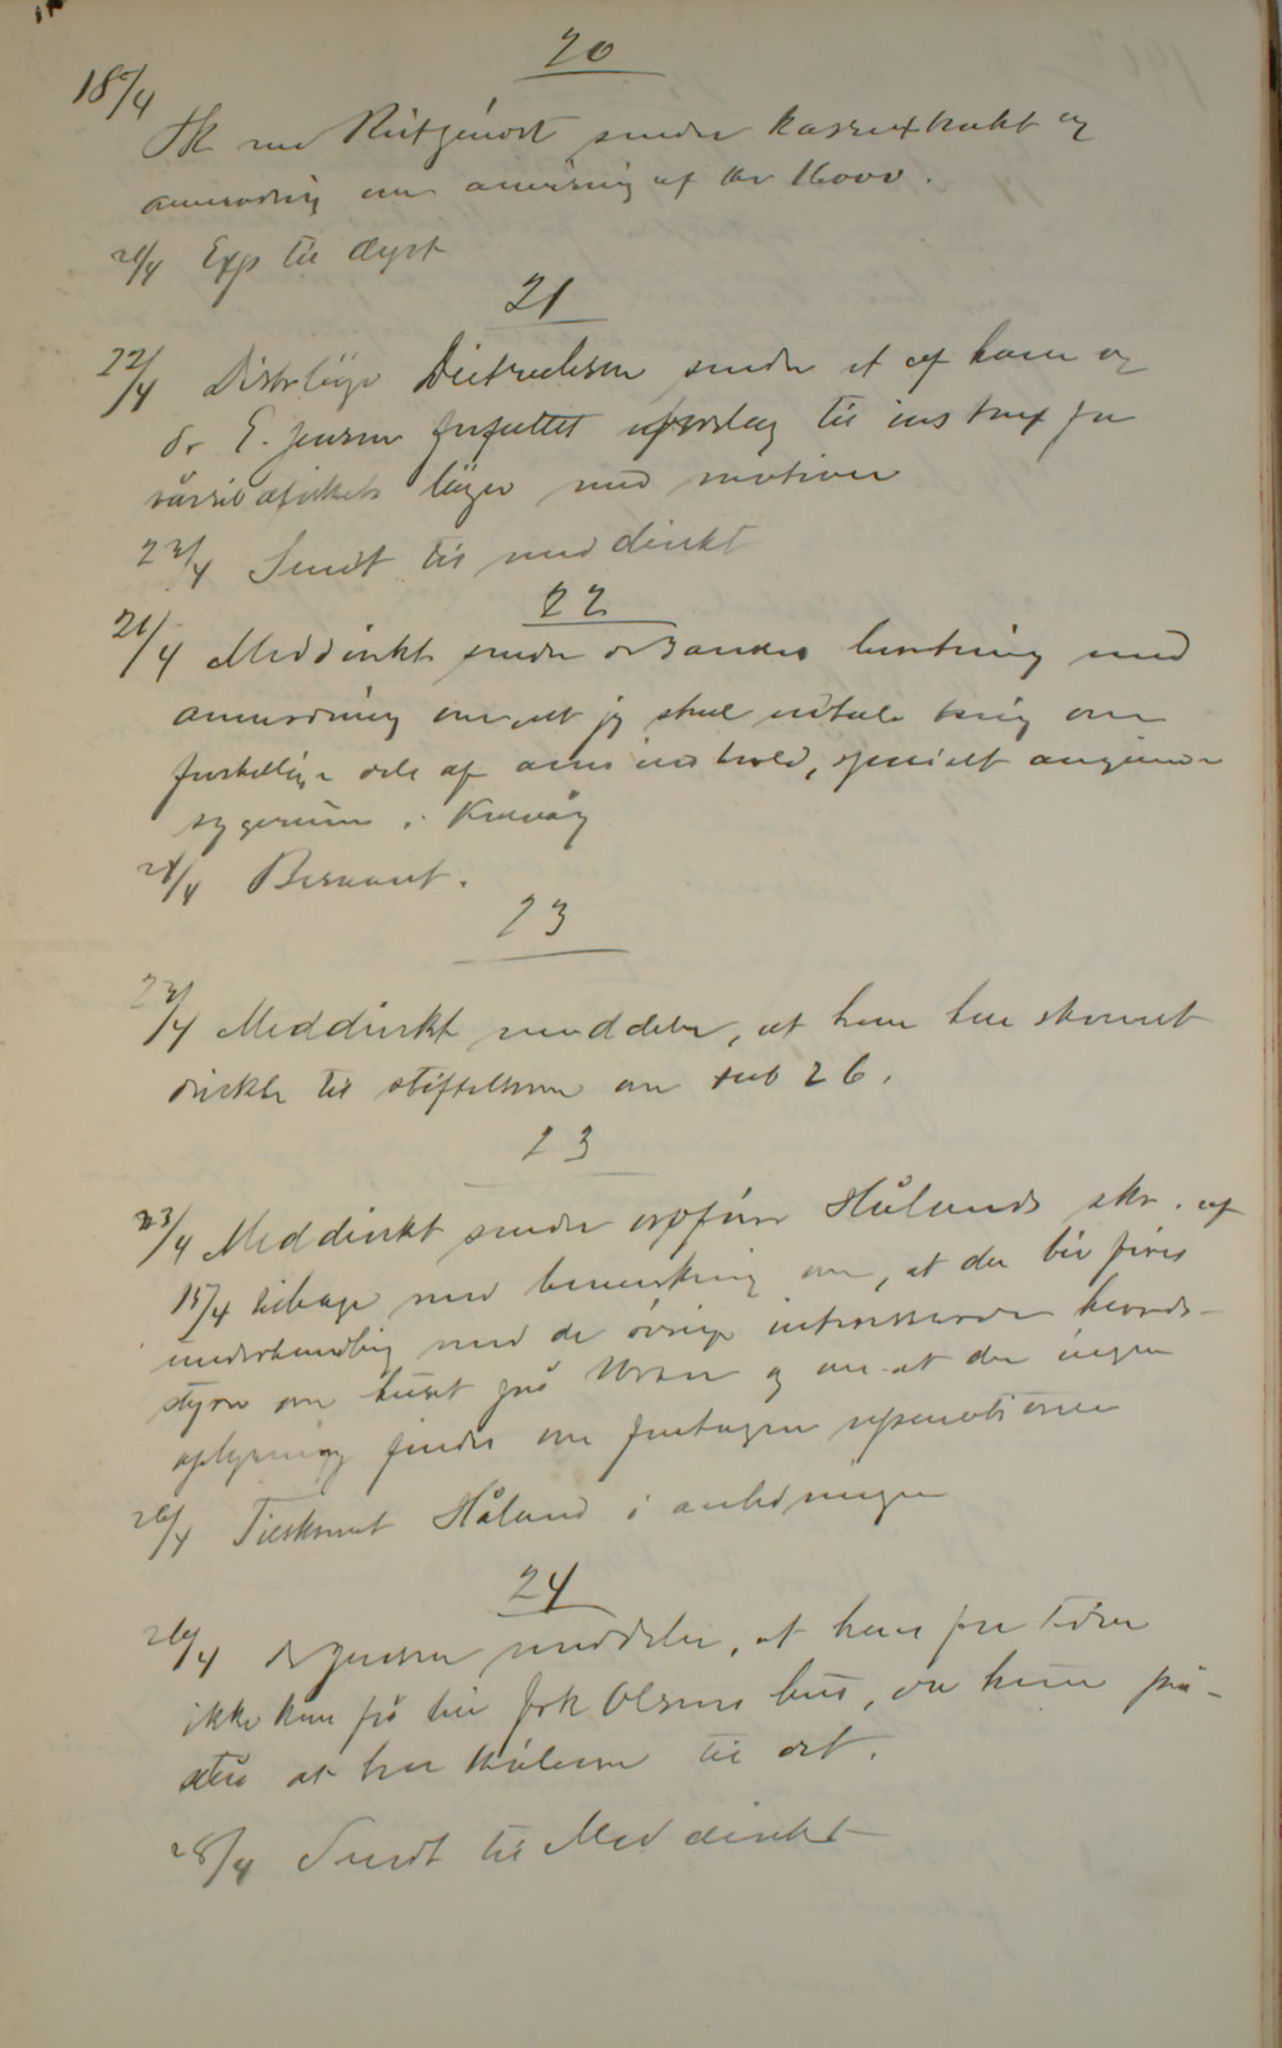 20
18/4
Sk ved Reitgjærdt sender kasseextrakt og
anmodning om anvisning af kr 16000.
21/4 Exp til Dept
21
22/4 Distrlæge Dietrichson sender et af ham og
dr E. Jensen forfattet forslag til instrux for
vårsildfiskets læger med motiver
22/4 Sendt til meddirekt
22
21/4 Meddirekt sender dr Sandes beretning med
anmodning om at jeg skal udtale mig om
forskellige dele af dens indhold, specielt angående
sygerum i Kolvåg
24/4 Besvaret.
23
23/4 Meddirekt meddeler, at han har skrevet
direkte til stiftelsen om sub 26.
23
23/4 Meddirekt sender opsynsm Hålands skr. af
15/4 tilbage med bemerkning om, at der bør føres
underhandling med de øvrige interesserede herreds-
styrer om huset på Utsire og om at der ingen
oplysning findes om foretagne reparationer
26/4 Tilskrevet Håland i anledningen
24
26/4 dr Jensen meddeler, at han for tiden
ikke kan få leie frk Olsens hus, da hun på-
står at ha selv til det.
28/4 Sendt til Med direkt